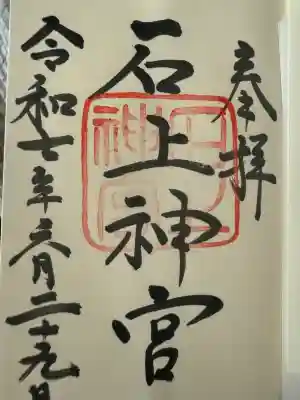 奉拝
石上神宮
令和七年三月二十九日